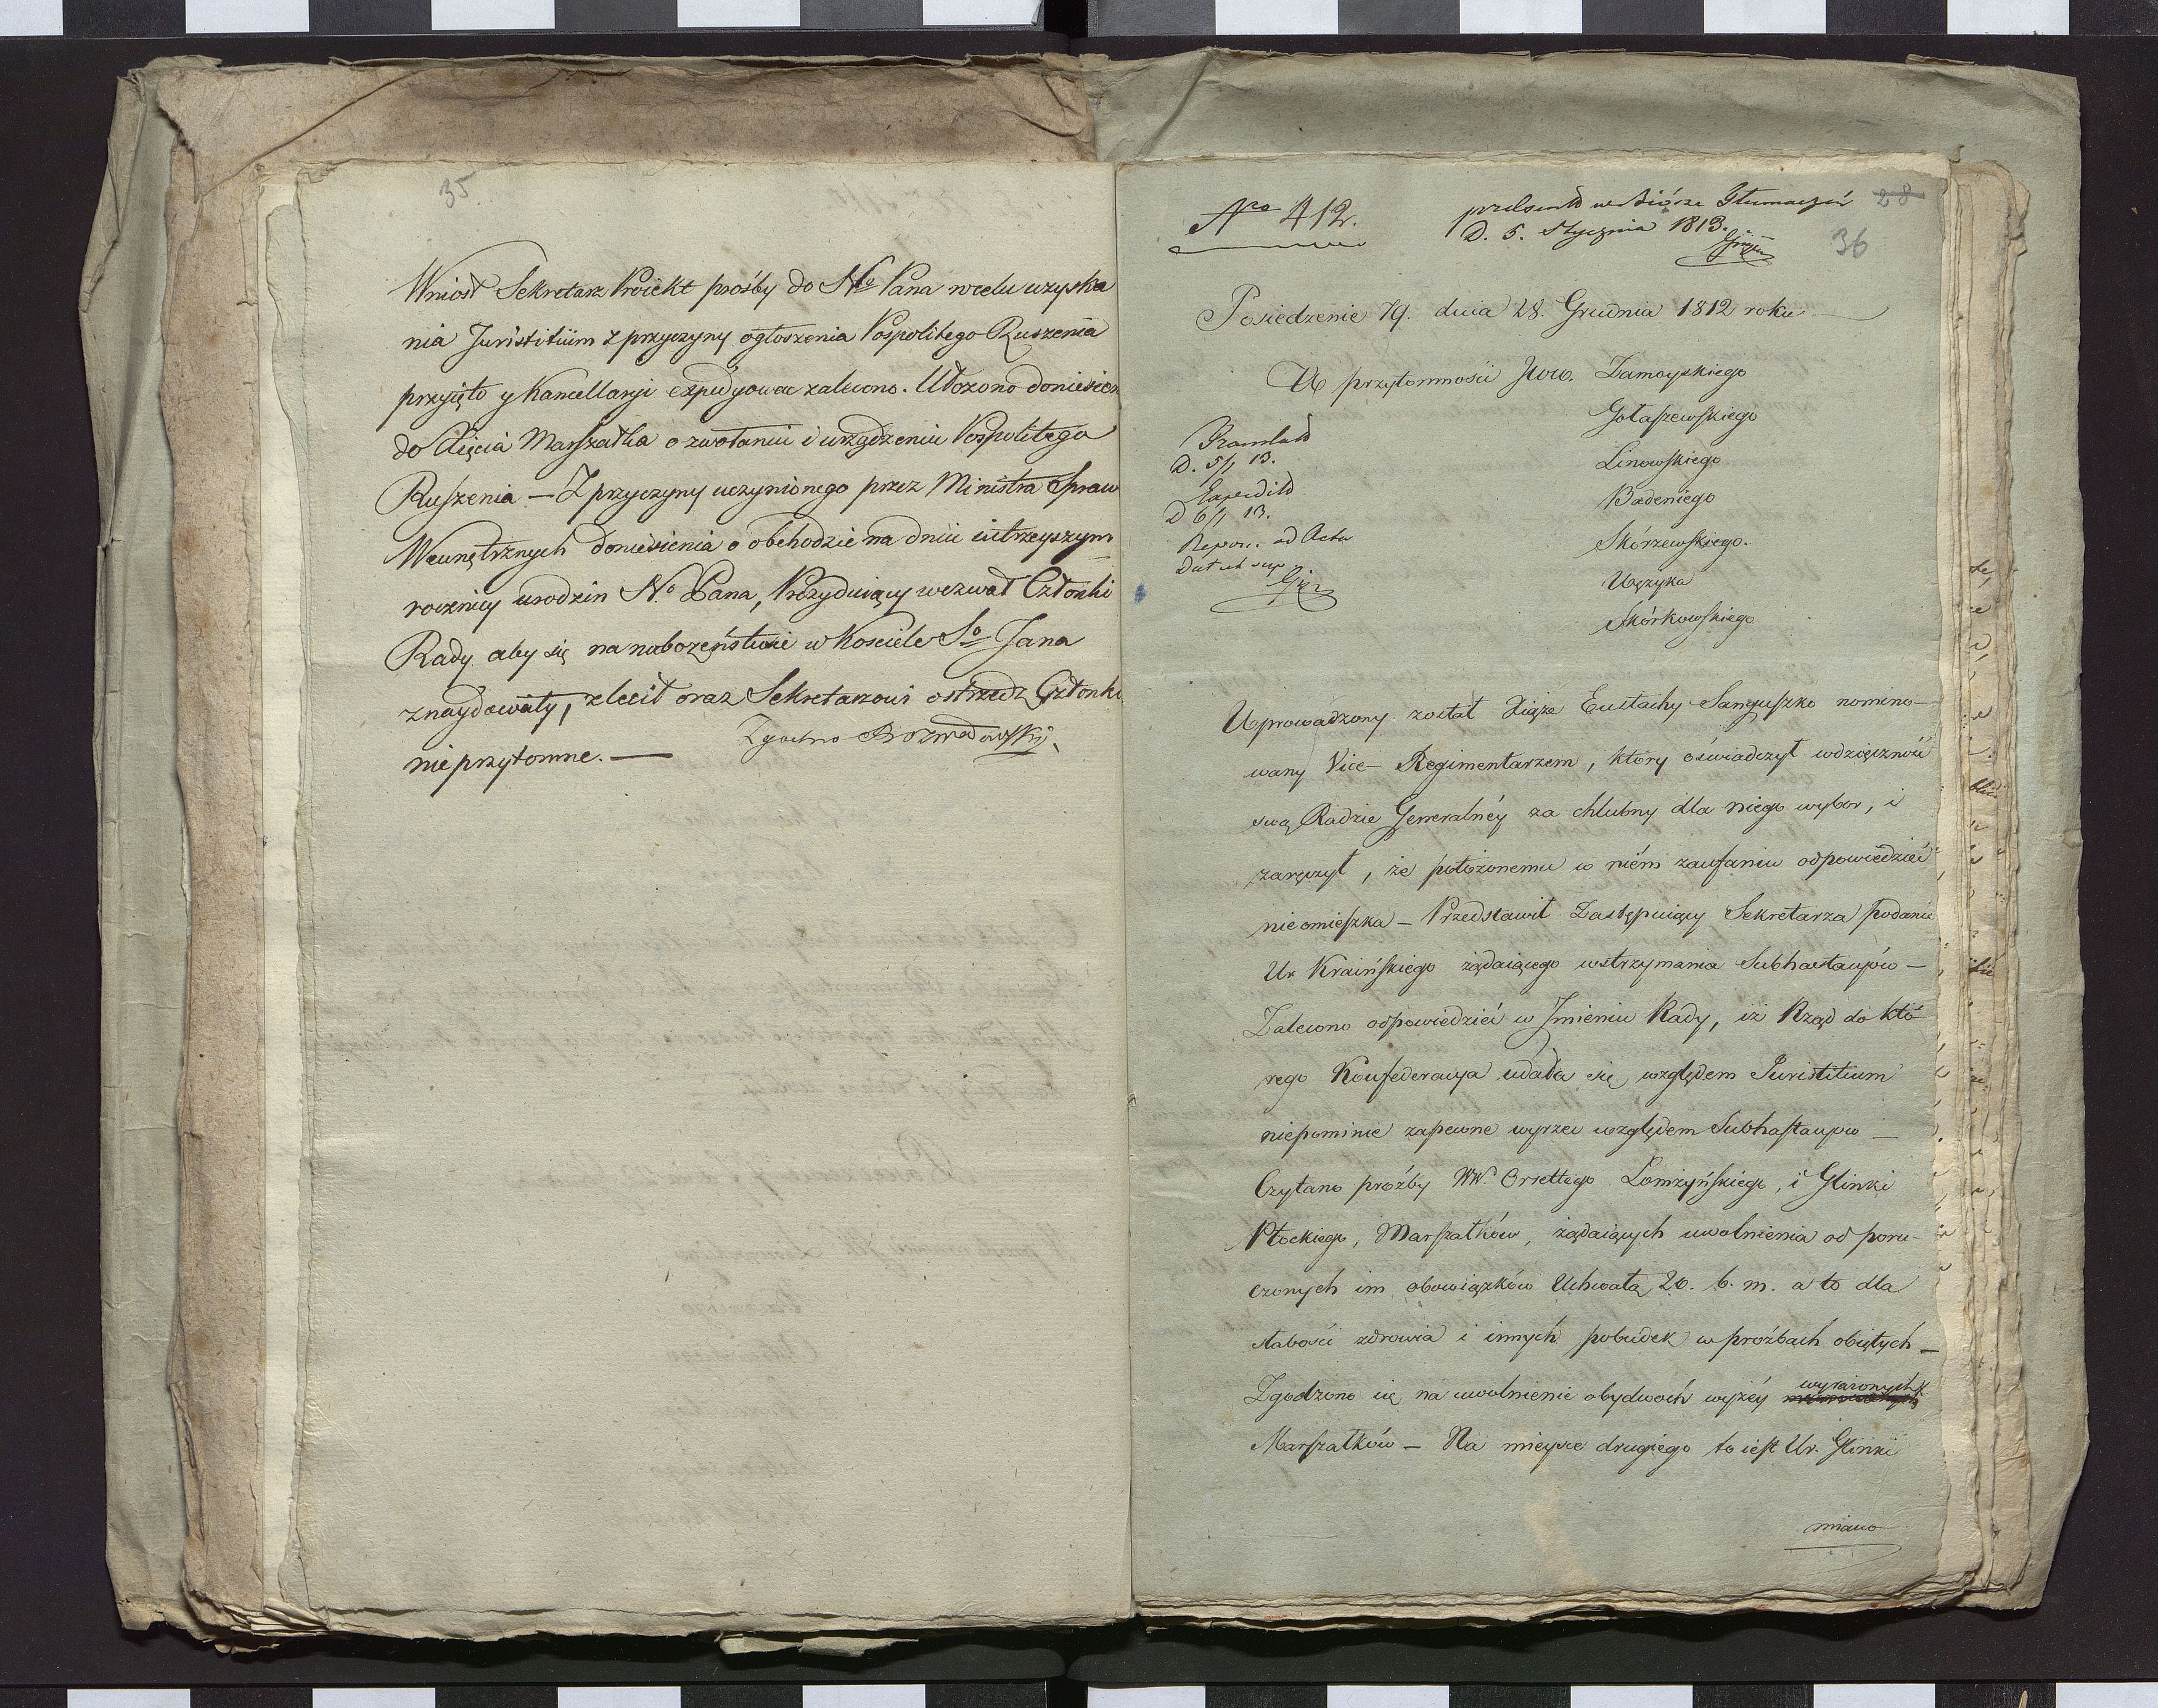 35
Wniosł Sekretarz Proiekt prośby do No Pana w celu uzyska
nia Juristitium z przyczyny ogłoszenia Pospolitego Ruszenia
przyięto y Kancellaryi expedyować zalecono. Ułożono doniesien
do Xięcia Marszałka o zwołaniu i urządzeniu Pospolitego
Ruszenia — Z przyczyny uczynionego przez Ministra Spraw
Wewnętrznych doniesienia o obchodzie na dniu iutrzeyszym
rocznicy urodzin No Pana, Prezyduiący wezwał Członki
Rady aby się na nabożeństwie w Kosciele So Jana
znaydowały, zlecił oraz Sekretarzowi ostrzedz Członki
nieprzytomne. —
Zgodno Rozwadowski
No 412.
w Biórze Tłumaczeń
D. 5. Stycznia 1813.
28
36
Posiedzenie 79. dnia 28. Grudnia 1812 roku
W przytomności JWW. Zamoyskiego
Gołaszewskiego
Linowskiego
Badeniego
Skórzewskiego.
Wężyka
Skórkowskiego
D. 5/1 13.
Expedit
D 6/1 13.
Repon. ad Acta
Dat ut sup
Wprowadzony został Xiąże Eustachy Sanguszko nomino-
wany Vice-Regimentarzem, który oświadczył wdzięczność
swą Radzie Generalnéy za chlubny dla niego wybor, i
zaręczył, że położonemu w niém zaufaniu odpowiedzieć
nieomieszka — Przedstawił Zastępuiący Sekretarza podanie
Ur. Kraińskiego żądaiącego wstrzymania Subhastacyów —
Zalecono odpowiedzieć w Imieniu Rady, iż Rząd do któ-
rego Konfederacya udała się względem Juristitium
niepominie zapewne wyrzec względem Subhastacyow —
Czytano prozby WW. Orsettego Łomżyńskiego, i Glinki
Płockiego, Marszałków, żądaiących uwolnienia od poru-
czonych im obowiązków Uchwałą 20. b. m. a to dla
słabości zdrowia i innych pobudek w proźbach obiętych —
Zgodzono się na uwolnienie obydwoch wyżéy wyrażonych
Marszałków — Na mieysce drugiego to iest Ur. Glinki
miano